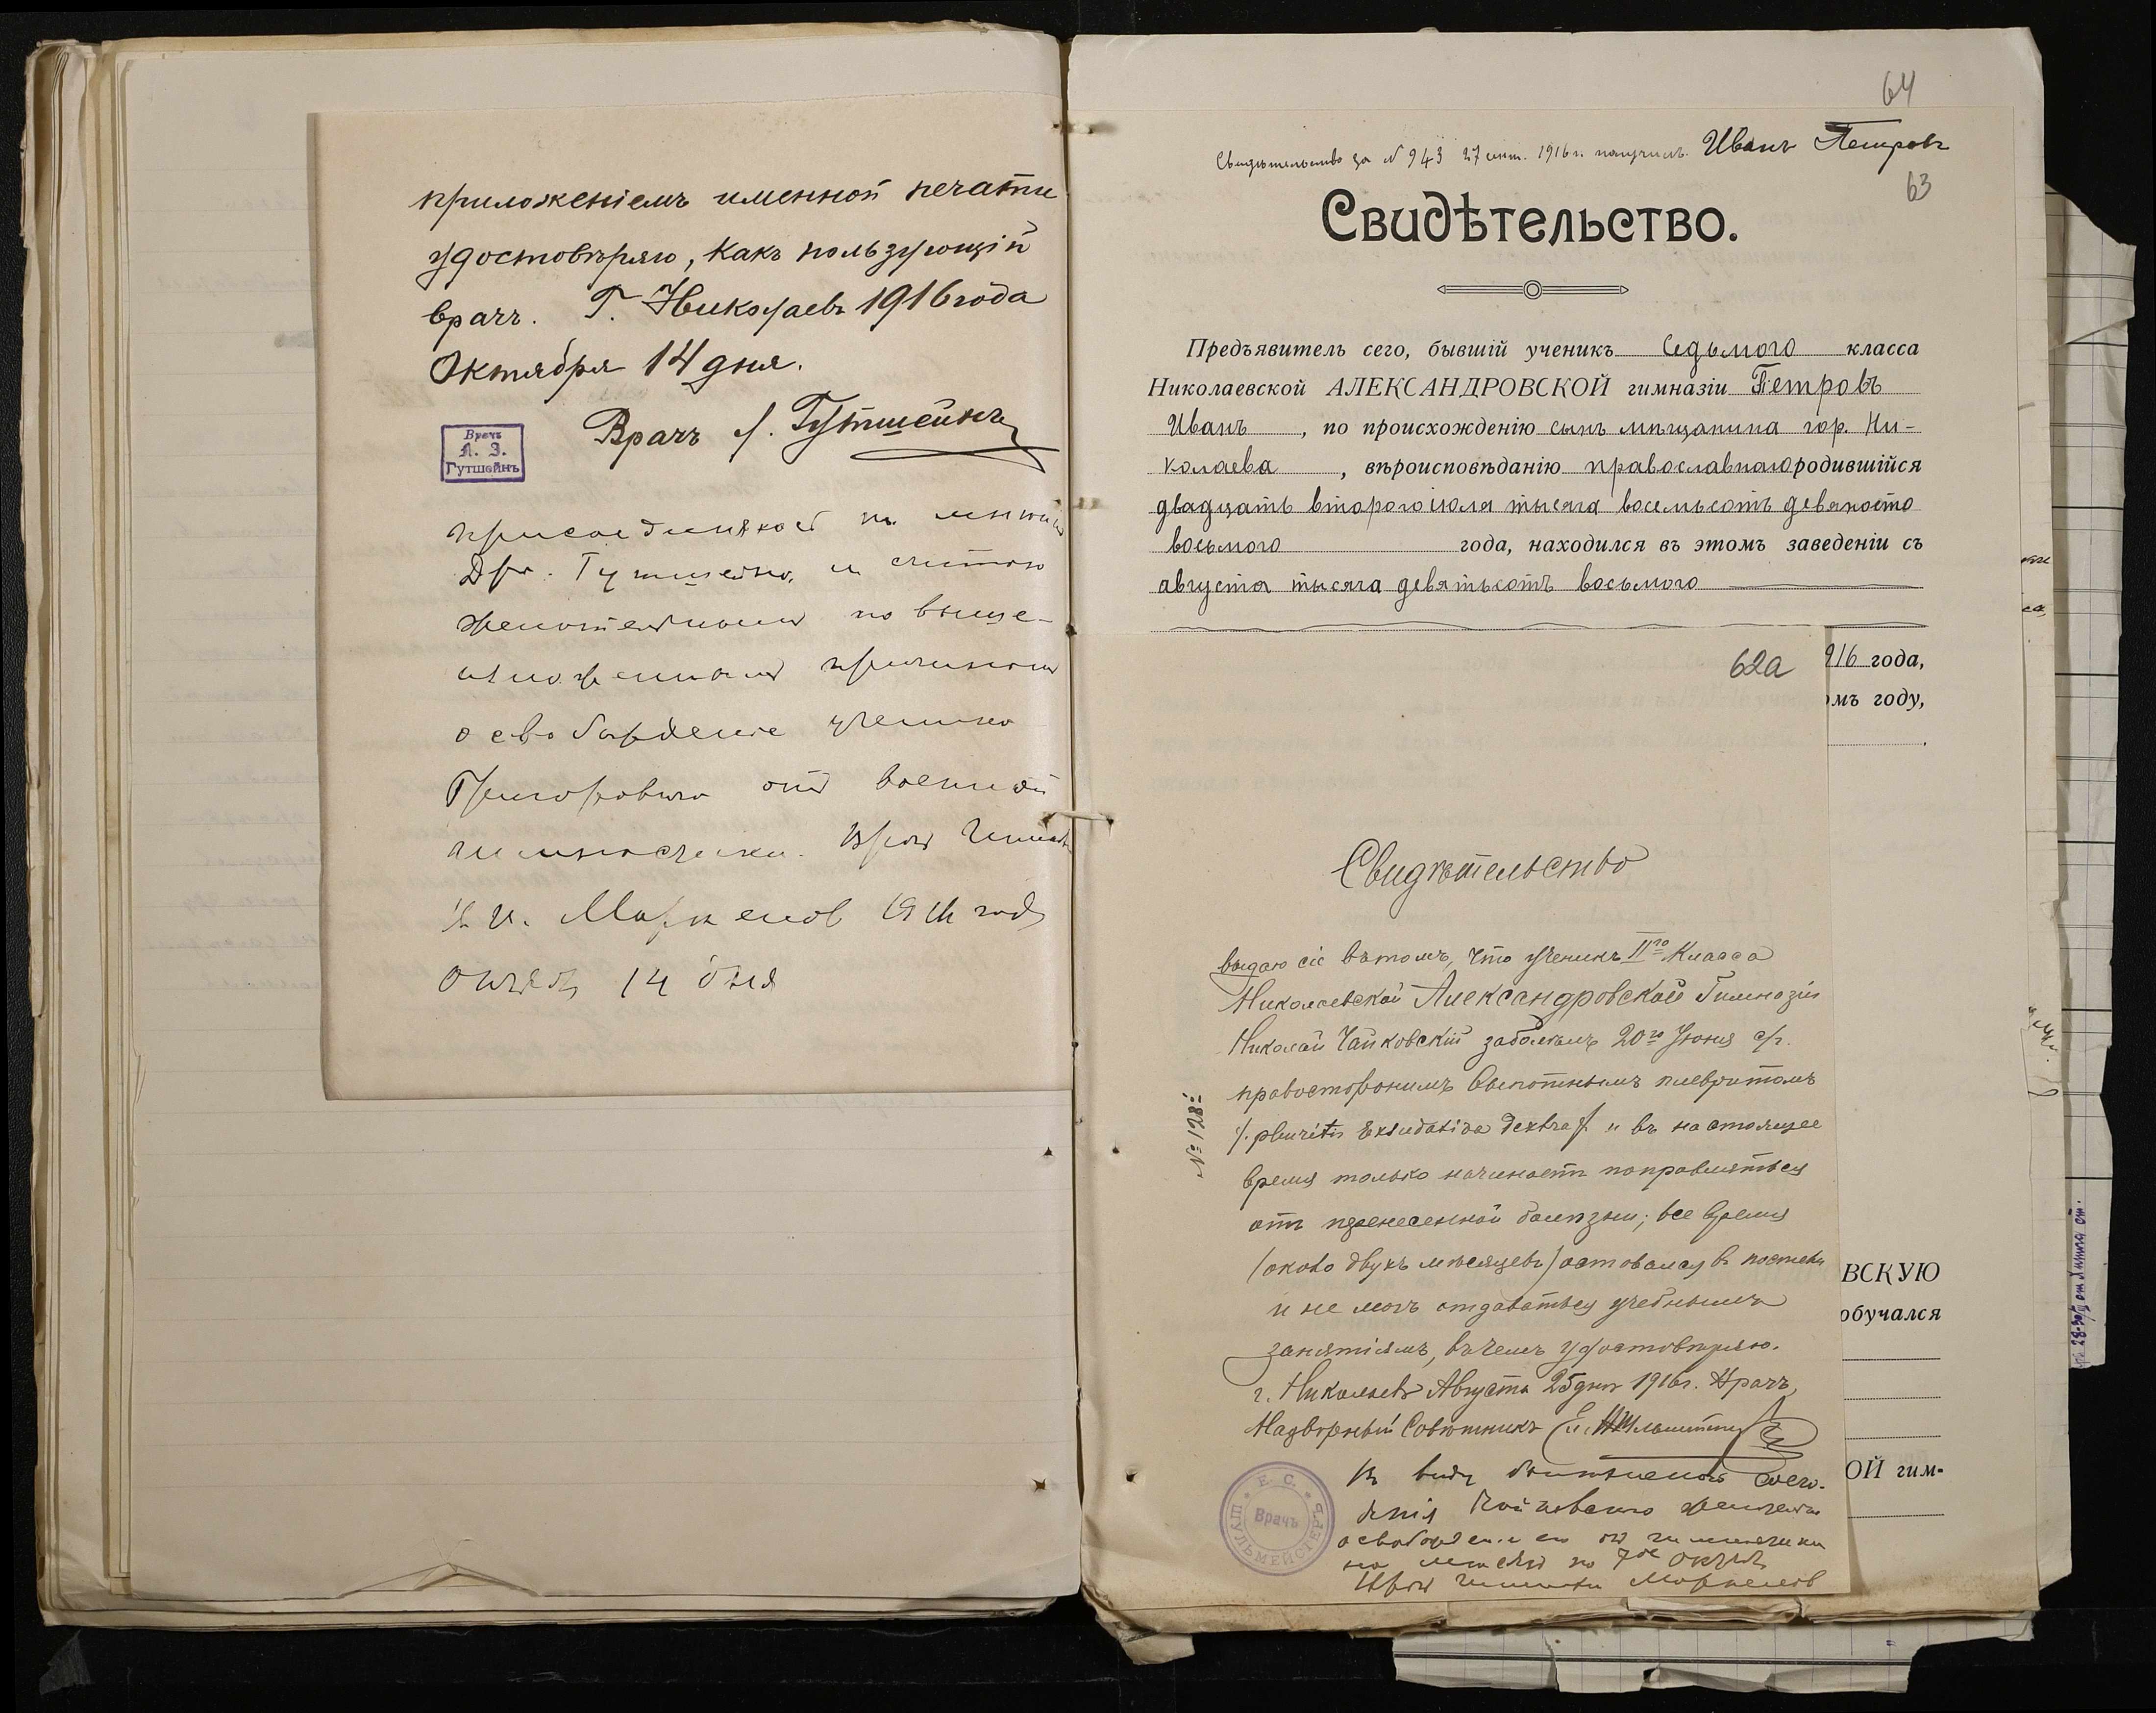 приложеніемъ именной печати
удостовѣряю, какъ пользующій
врачъ. Г. Николаевъ 1916 года
Октября 14 дня.
Врачъ Л. Гутшейнъ
Врачъ
Л. З.
Гутшейнъ
присоединяюсь къ мнѣнію
Д-ра Гутшейна и считаю
желательнымъ по выше-
изложеннымъ причинамъ
освобожденіе ученика
Григоровича отъ военной
гимнастики. Врачъ
Маркелов 1916 года
14 дня
64
Свидѣтельство за № 943 27 1916 г. получилъ. Иванъ Петровъ
63
Свидѣтельство.
Предъявитель сего, бывшій ученикъ седьмого класса
Николаевской АЛЕКСАНДРОВСКОЙ гимназіи Петровъ
Иванъ, по происхожденію сынъ мѣщанина гор. Ни-
колаева, вѣроисповѣданію православнаго родившійся
двадцать второго іюля тысяча восемьсотъ девяносто
восьмого года, находился въ этомъ заведеніи съ
августа тысяча девятьсотъ восьмого
916 года,
омъ году,
62а
Свидѣтельство
выдаю сіе въ томъ, что ученикъ IIго класса
Николаевской Александровской Гимназіи
Николай Чайковскій заболѣлъ 20го Іюня с/г.
правостороннимъ выпотнымъ плевритомъ
/. pleuritis exsudativa dextra /. и въ настоящее
время только начинаетъ поправляться
отъ перенесенной болѣзни; все время
(около двухъ мѣсяцевъ) оставался въ постели
и не могъ отдаваться учебнымъ
занятіямъ, въ чемъ удостовѣряю.
г. Николаевъ Августа 25 дня 1916 г. Врачъ,
Надворный Совѣтникъ Е. Шульмейстеръ
№ 128
Е. С.
ШУЛЬМЕЙСТЕРЪ
Врачъ
Въ виду
Чайковскаго
освобожденіе его отъ гимнастики
на по 7ое
Врачъ Маркелов
ВСКУЮ
обучался
ОЙ гим-